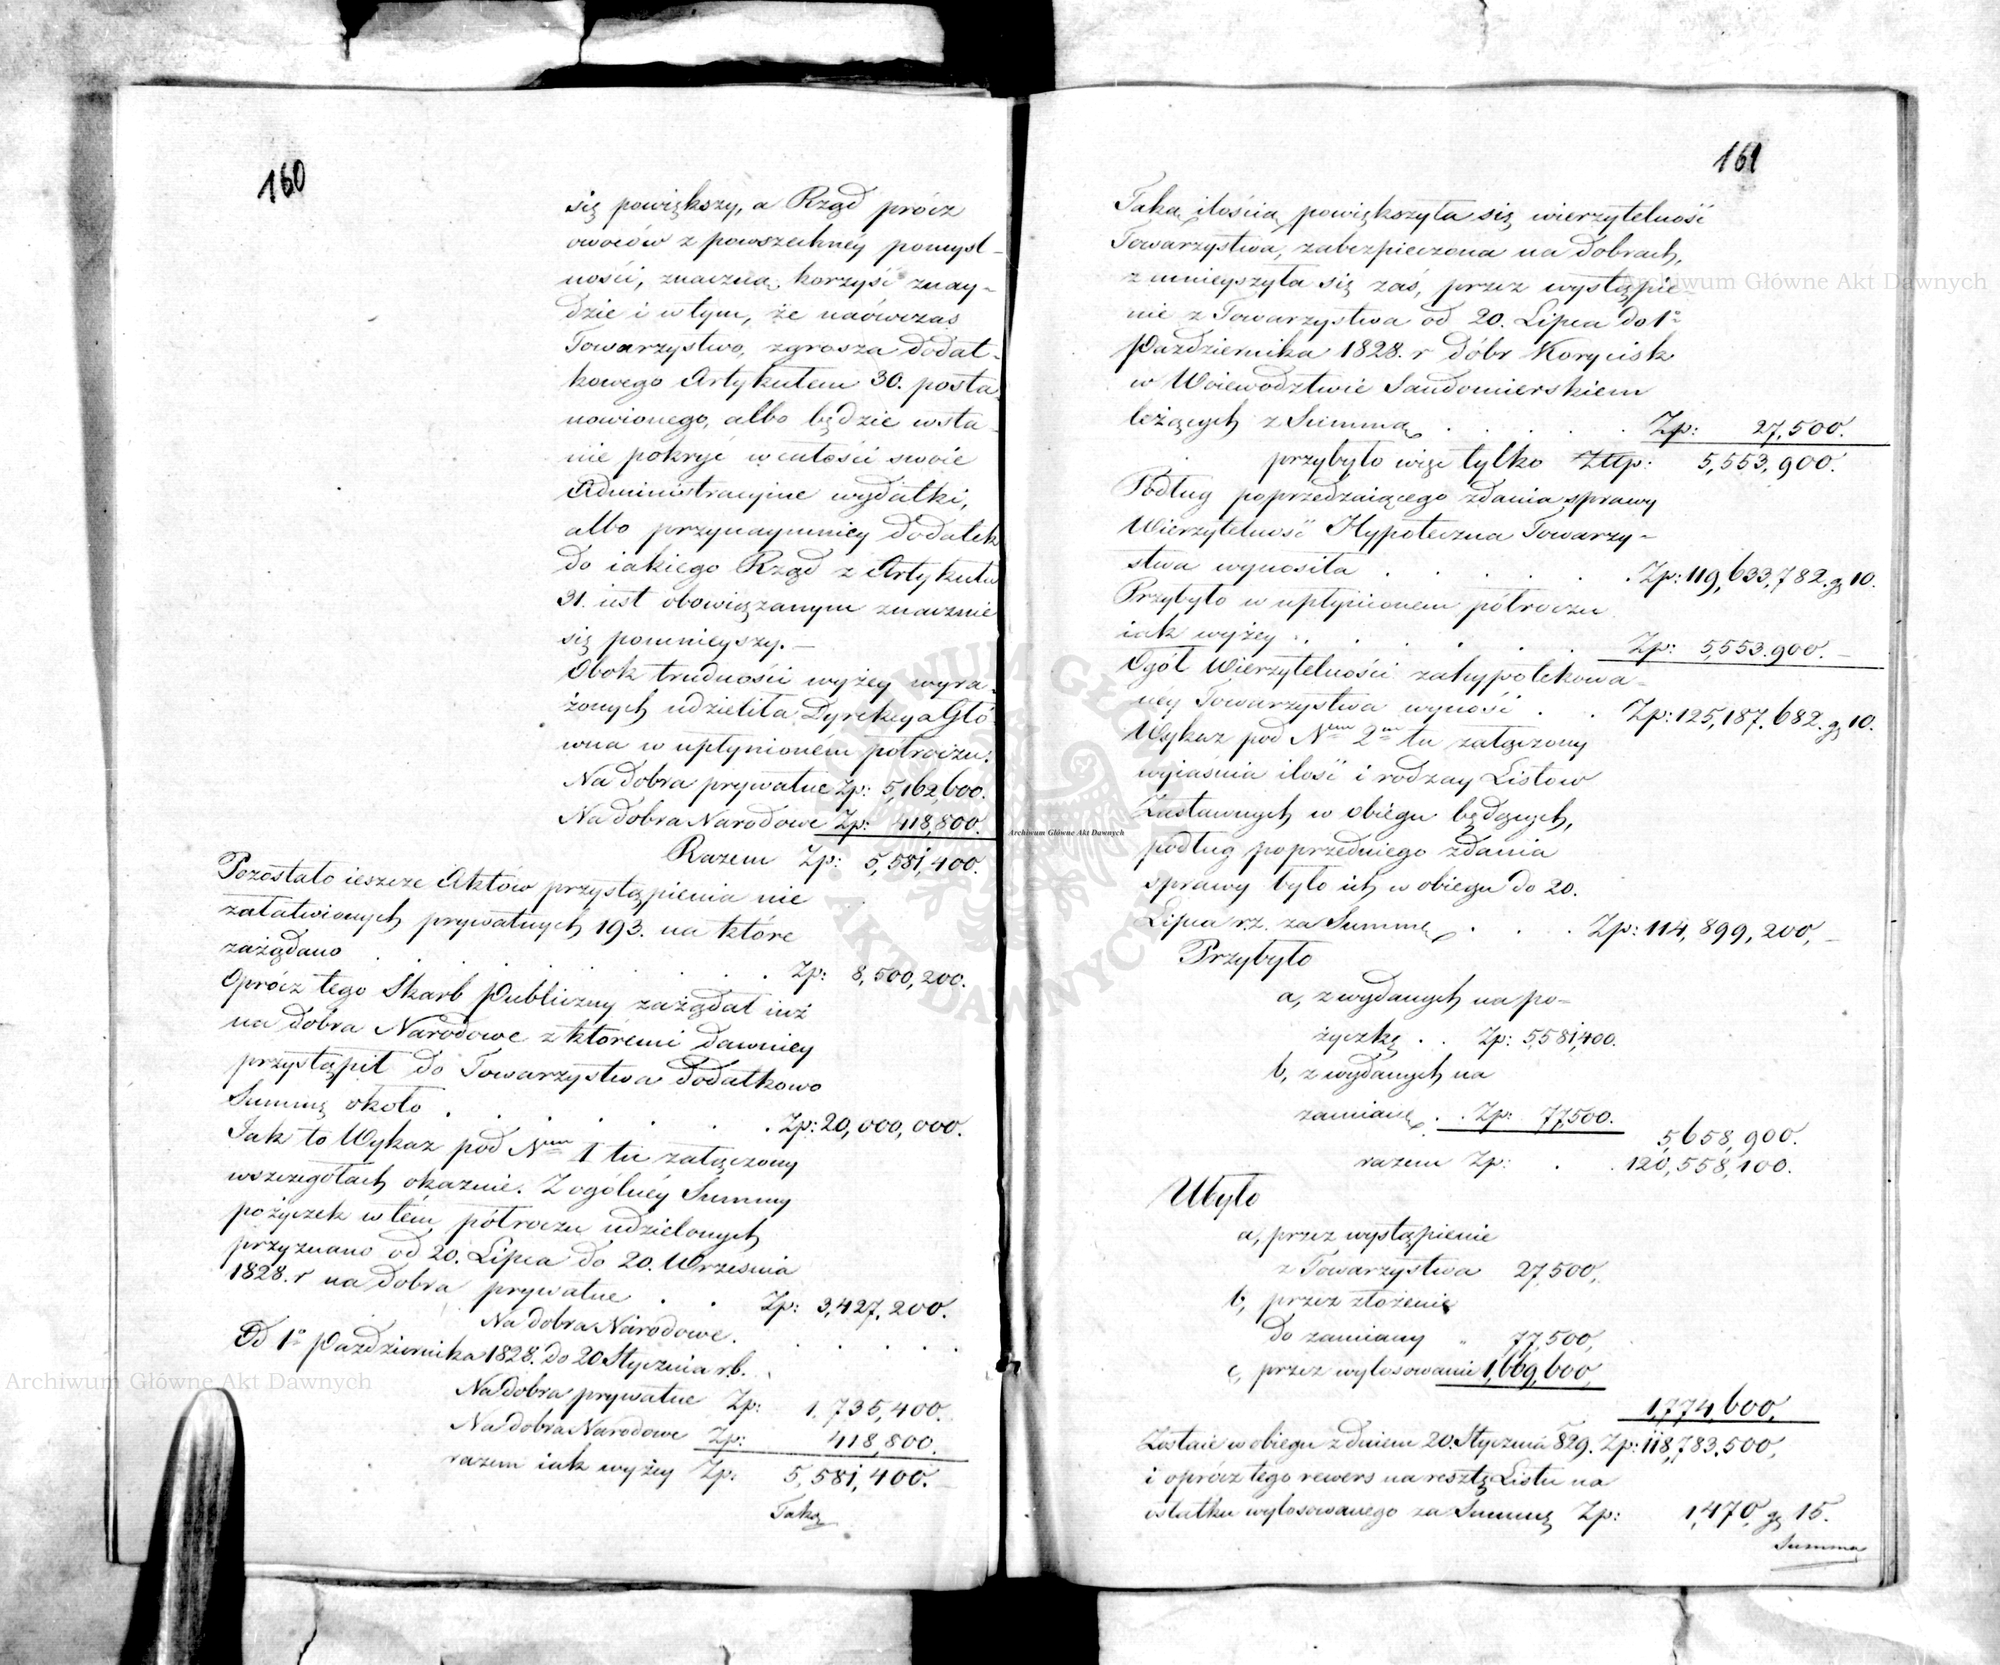 160
się powiększy, a Rząd prócz
owoców z powszechnéy pomysl-
ności, znaczną korzyść znay-
dzie i w tym, że naówczas
Towarzystwo, zgrosza dodat-
kowego Artykułem 30. posta-
nowionego, albo będzie wsta-
nie pokryć w całości swoie
Administracyine wydatki,
albo przynaymniey dodatek
do iakiego Rząd z Artykułu
31. iest obowiązanym znacznie
się pomnieyszy.—
Obok trudności wyżey wyra-
żonych udzieliła Dyrekcya Głó-
wna w upłynioném półroczu:
Na dobra prywatne Zp: 5,162,600.
Na dobra Narodowe Zp: 418,800.
Razem Zp: 5,581,400.
Pozostało ieszcze Aktów przystąpienia nie
załatwionych prywatnych 193. na które
zażądano . . . . . . . . Zp: 8,500,200.
Oprócz tego Skarb Publiczny zażądał iuż
na dobra Narodowe z któremi dawniey
przystąpił do Towarzystwa dodatkowo
Summę około . . . . . . Zp: 20,000,000.
Jak to Wykaz pod Nrem 1 tu załączony
wszczegółach okazuie. Z ogólnéy Summy
pożyczek w tém półroczu udzielonych
przyznano od 20. Lipca do 20. Września
1828. r na dobra prywatne . . Zp: 3,427,200.
Na dobra Narodowe. . . . . .
Od 1o Października 1828. do 20 Stycznia r.b.
Na dobra prywatne Zp: 1,735,400.
Na dobra Narodowe Zp: 418,800.
razem iak wyżey Zp: 5,581,400.—
Taką
161
Taką ilością powiększyła się wierzytelność
Towarzystwa, zabezpieczona na dobrach,
zmnieyszyła się zaś, przez wystąpie-
nie z Towarzystwa od 20. Lipca do 1o
Października 1828. r dóbr Korycisk
w Woiewództwie Sandomierskiem
leżących z Summą . . . . . Zp: 27,500.
przybyło więc tylko Złtp: 5,553,900.
Podług poprzedzaiącego zdania sprawy
Wierzytelność Hypoteczna Towarzy-
stwa wynosiła . . . . . Zp: 119,633,782. g 10.
Przybyło w upłynionem półroczu
iak wyżey . . . . . . Zp: 5,553.900.—
Ogół Wierzytelności zahypotekowa-
ney Towarzystwa wynosi . . Zp: 125,187.682. g 10.
Wykaz pod Nrem 2m tu załączony
wyiaśnia ilość i rodzay Listów
Zastawnych w obiegu będących,
podług poprzedniego zdania
sprawy było ich w obiegu do 20.
Lipca r.z. za Summę . . . Zp: 114,899,200,—
Przybyło
a, z wydanych na po-
życzkę . . Zp: 5,581,400.
b, z wydanych na
zamianę . . Zp: 77,500.
5,658,900.
razem Zp: . . 120,558,100.
Ubyło
a, przez wystąpienie
z Towarzystwa 27,500,
b, przez złożenie
do zamiany „ 77,500,
c, przez wylosowanie 1,669,600,
1,774,600,
Zostaie w obiegu z dniem 20. Stycznia 829. Zp: 118,783,500,
i oprócz tego rewers na resztę Listu na
ostatku wylosowanego za Summę Zp: 1,470, g 15.
Summa
Archiwum Główne Akt Dawnych
Archiwum Główne Akt Dawnych
Archiwum Główne Akt Dawnych